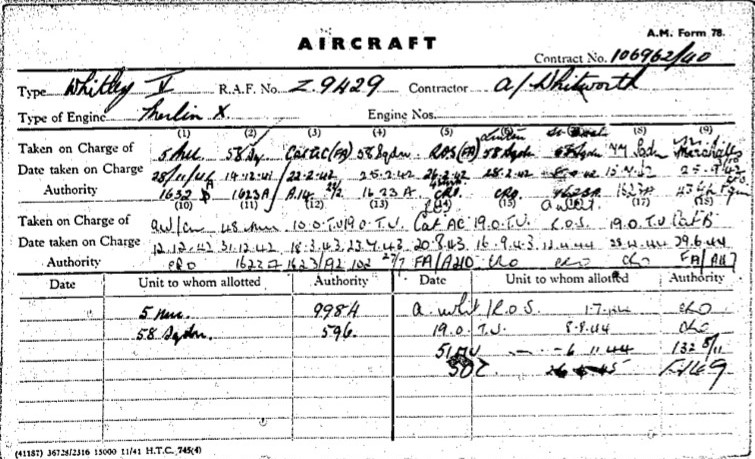 A.M. Form 78.
AIRCRAFT
Contract No. 106962/40
Type Whitley V R.A.F. No. Z.9429 Contractor A/Whitworth
Type of Engine Merlin X. Engine Nos.
(1) (2) (3) (4) (5) (8) (9)
Taken on Charge of 5 MU 58 Sq. Cat AC (FA) 58 Sqdn R.O.S (FA) 58 Sqdn 77 Sqdn Marshalls
Date taken on Charge 28/11/41 14.12.41 22.2.42 25.2.42 26.2.42 28.2.42 25.9.42
Authority 1632 1623A A.14 1623A CRO. CRO. 1623A 1623A
(10) (11) (12) (13) (14) (15) (17) (18)
Taken on Charge of 48 MU 10.O.T.U 19.O.T.U. Cat AC 19.O.T.U. R.O.S. 19.O.T.U Cat B
Date taken on Charge 12.12.42 31.12.42 18.3.43 23.7.43 20.8.43 16.9.43 12.4.44 28.4.44 29.6.44
Authority CRO 1623/92 102 27/7 FA/A210 CRO CRO CRO FA/
Date Unit to whom allotted Authority Date Unit to whom allotted Authority
5 MU. 9984 A. Whit/R.O.S. 1.7.44 CRO
58 Sqdn. 596. 19.O.T.U. 8.8.44 CRO
51 MU 6 11 44 132 8/11
SOC
(41187) 36728/2316 15000 11/41 H.T.C. 745(4)